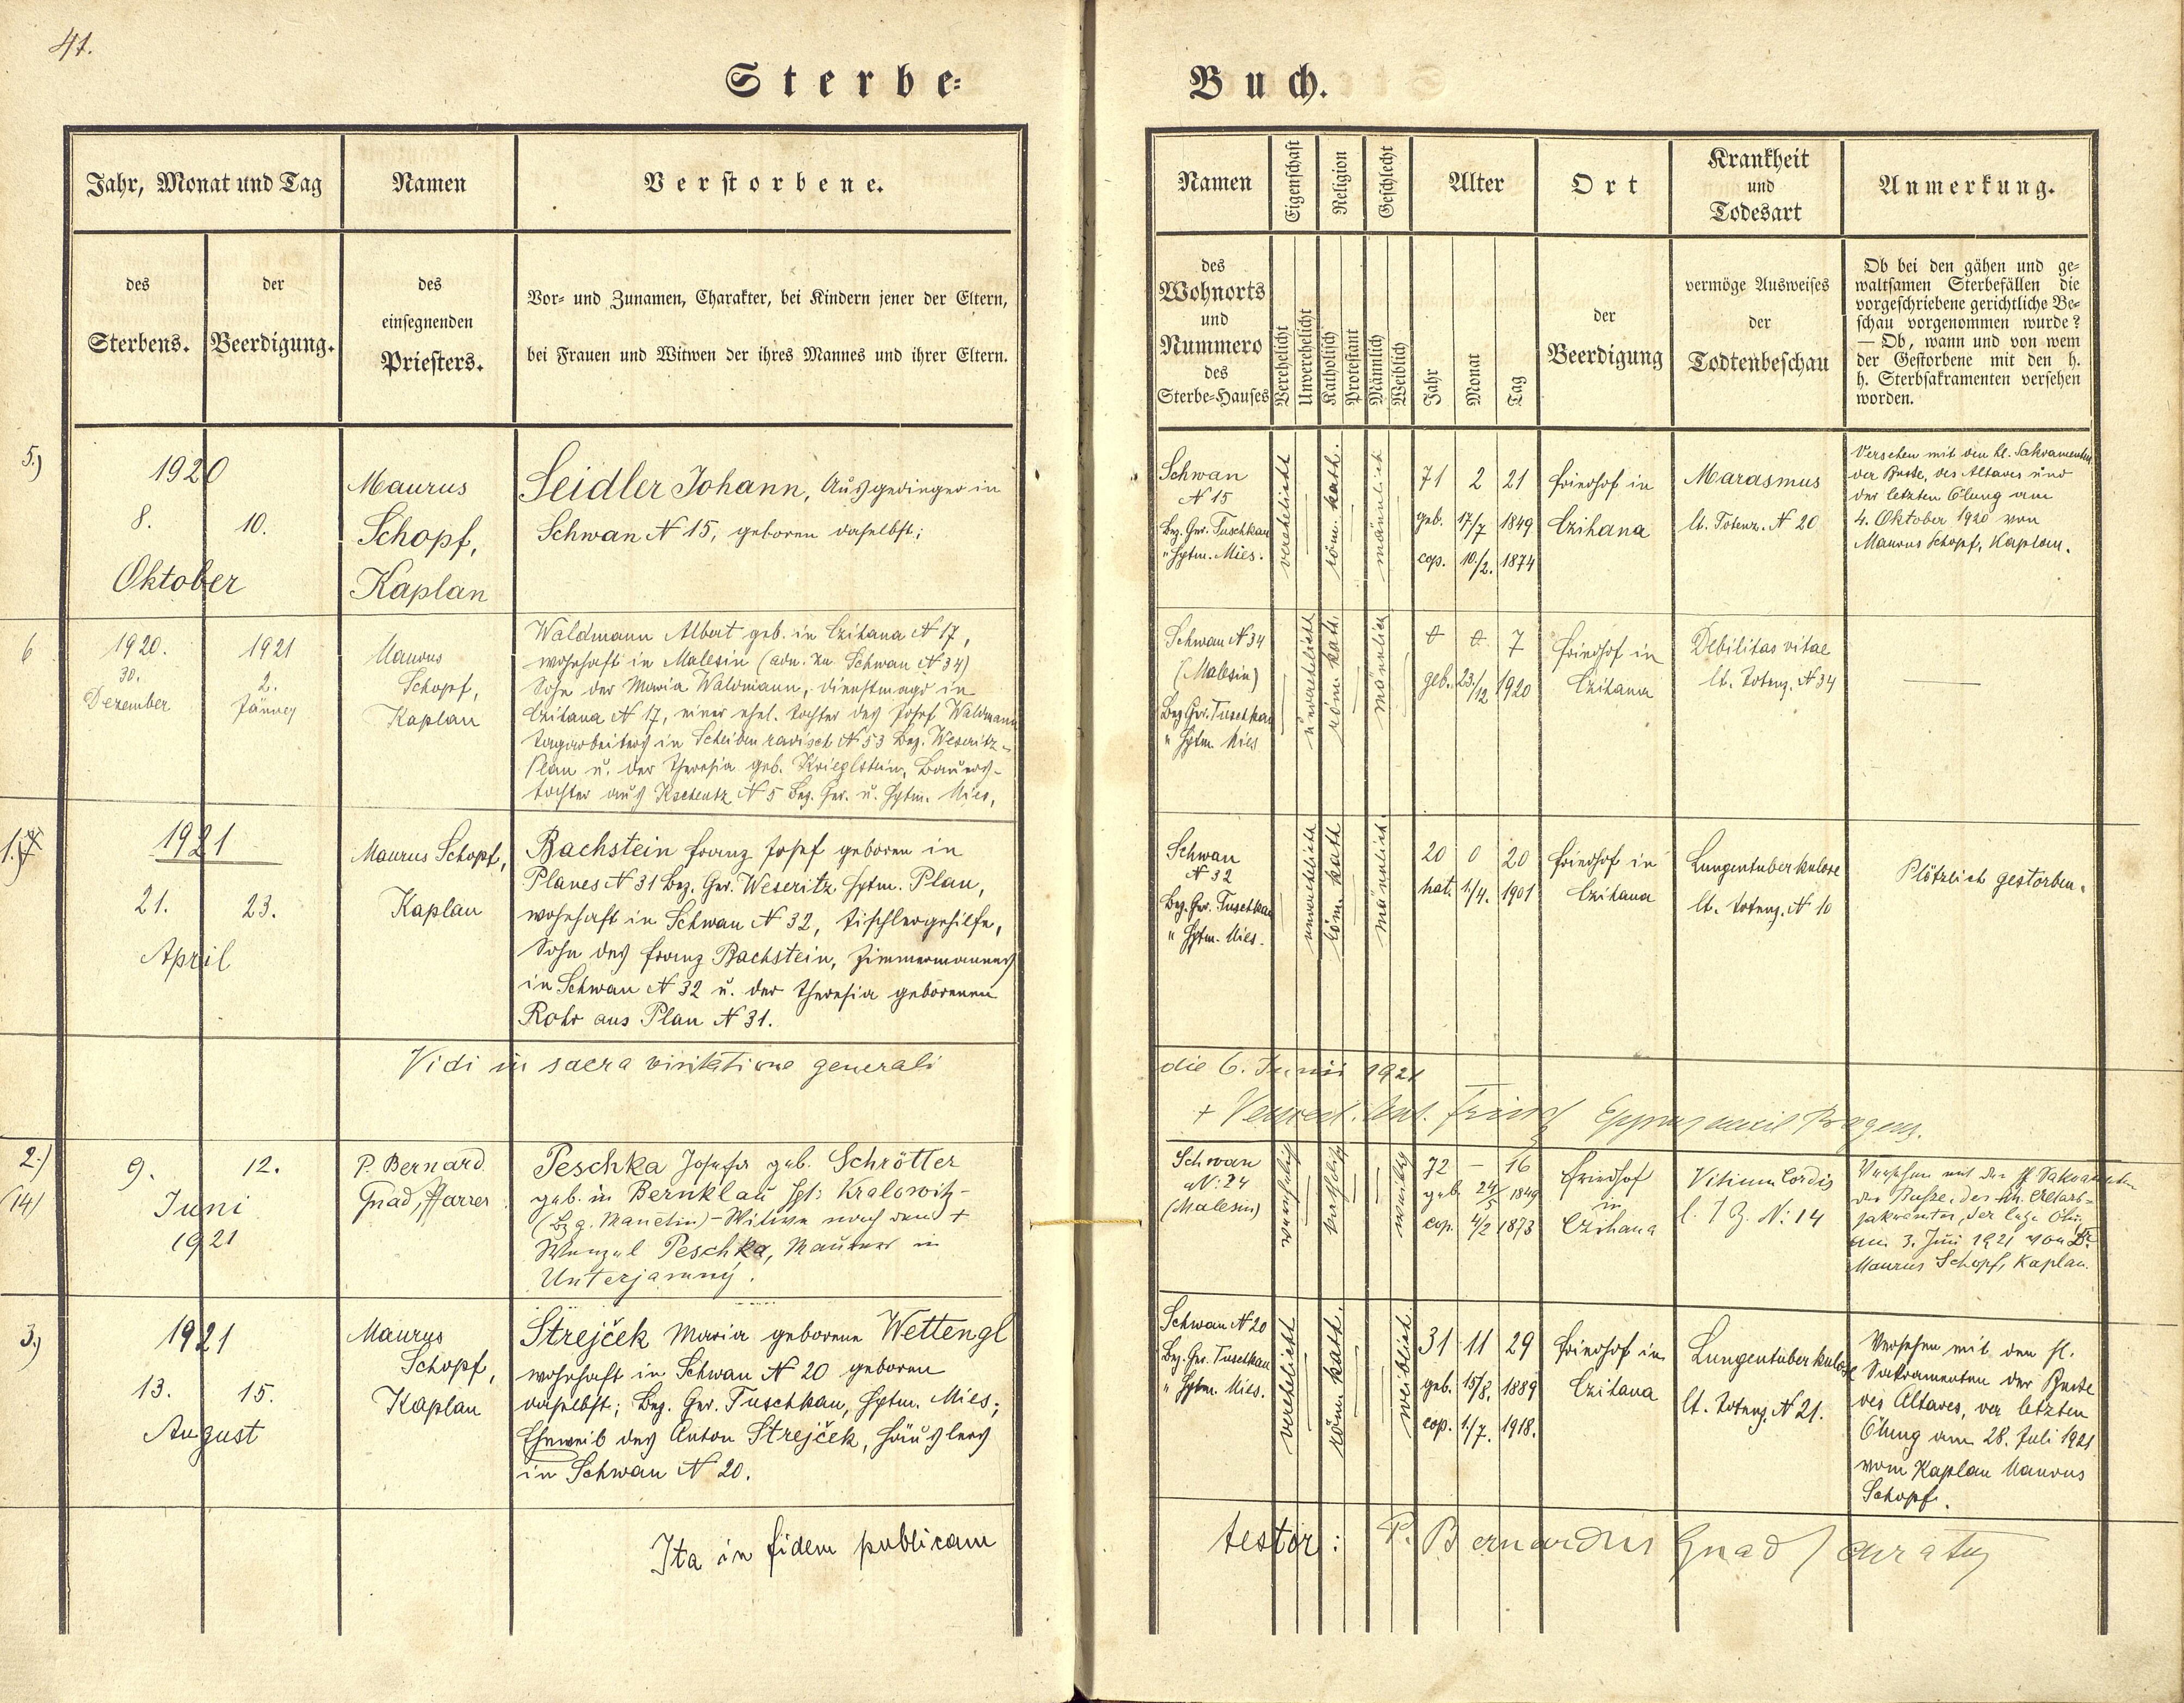 41.
Sterbe-
Buch.
Jahr, Monat und Tag
Namen
Verstorbene.
des
Sterbens.
der
Beerdigung.
des
einsegnenden
Priesters.
Vor- und Zunamen, Charakter, bei Kindern jener der Eltern,
bei Frauen und Witwen der ihres Mannes und ihrer Eltern.
Namen
Eigenschaft
Religion
Geschlecht
Alter
Ort
Krankheit
und
Todesart
Anmerkung.
des
Wohnorts
und
Nummero
des
Sterbe-Hauses
Verehelicht
Unverehelicht
Katholisch
Protestant
Männlich
Weiblich
Jahr
Monat
Tag
der
Beerdigung
vermöge Ausweises
der
Todtenbeschau
Ob bei den gähen und ge-
waltsamen Sterbefällen die
vorgeschriebene gerichtliche Be-
schau vorgenommen wurde?
— Ob, wann und von wem
der Gestorbene mit den h.
h. Sterbsakramenten versehen
worden.
5.)
1920
8. 10.
Oktober
Maurus
Schopf,
Kaplan
Seidler Johann, Ausgedinger in
Schwan N 15, geboren daselbst;
Schwan
N 15
Bez. Ger. Tuschkau
" Hptm. Mies.
verehelicht
röm. kath.
männlich
71 2 21
geb. 17/7 1849
cop. 10./2. 1874
Friedhof in
Czihana
Marasmus
lt. Totenz. N 20
Versehen mit den hl. Sakramenten
der Busse, des Altares und
der letzten Ölung am
4. Oktober 1920 von
Maurus Schopf, Kaplan.
6
1920. 1921
30. 2.
Dezember Jänner
Maurus
Schopf,
Kaplan
Waldmann Albert geb. in Czihana N 17,
wohnhaft in Malesin (adn. zu Schwan N 34)
Sohn der Maria Waldmann, Dienstmagd in
Czihana N 17, einer ehel. Tochter des Josef Waldmann
Tagarbeiters in Scheibenradisch N 53 Bez. Weseritz-
Plan u. der Theresia geb. Krieglstein, Bauers-
tochter aus N 5 Bez. Ger. u. Hptm. Mies,
Schwan N 34
(Malesin)
Bez Ger. Tuschkau
" Hptm Mies
unverehelicht
röm. kath.
männlich
0 0 7
geb. 23./12 1920
Friedhof in
Czihana
Debilitas vitae
lt. Totenz. N 34
1.)
1921
21. 23.
April
Maurus Schopf,
Kaplan
Bachstein Franz Josef geboren in
Planes N 31 Bez. Ger. Weseritz Hptm. Plan,
wohnhaft in Schwan N 32, Tischlergehilfe,
Sohn des Franz Bachstein, Zimmermannes
in Schwan N 32 u. der Theresia geborenen
Rohr aus Plan N 31.
Schwan
N 32
Bez. Ger. Tuschkau
" Hptm. Mies.
unverehelicht
röm. kath
männlich.
20 0 20
nat. 1/4. 1901
Friedhof in
Czihana
Lungentuberkulose
lt. Totenz. N 10
Plötzlich gestorben.
Vidi in sacra visitatione generali
die 6. Junii 1921
2.)
(14)
9. 12.
Juni
1921
P. Bernard
Gnad, Pfarrer
Peschka Josefa geb. Schrötter
geb. in Bernklau Hpt: Kralowitz-
(Bzg. Manetin) - Witwe nach dem +
Wenzel Peschka, Maurer in
Unterjamný.
Schwan
N: 24
(Malesin)
katholisch
weiblich
72 – 16
geb 24/5 1849
cop. 4/2 1873
Friedhof
in
Czihana
Vitium Cordis
l. T Z. N: 14
Versehen mit den hl Sakramenten
der Busse, des
am 3. Juni 1921 von
Maurus Schopf, Kaplan.
3.)
1921
13. 15.
August
Maurus
Schopf,
Kaplan
Strejček Maria geborene Wettengl
wohnhaft in Schwan N 20 geboren
daselbst; Bez. Ger. Tuschkau, Hptm. Mies;
Eheweib des Anton Strejček, Häuslers
in Schwan N 20.
Schwan N 20
Bez. Ger. Tuschkau
" Hptm. Mies.
verehelicht
röm. kath.
weiblich
31 11 29
geb. 15/8. 1889
cop. 1./7. 1918.
Friedhof in
Czihana
Lungentuberkulose
lt. Totenz. N 21.
Versehen mit den hl.
Sakramenten der Busse
des Altares, der letzten
Ölung am 28. Juli 1921
vom Kaplan Maurus
Schopf.
Ita in fidem publicam
testor: P. Bernardus Gnad / curatus